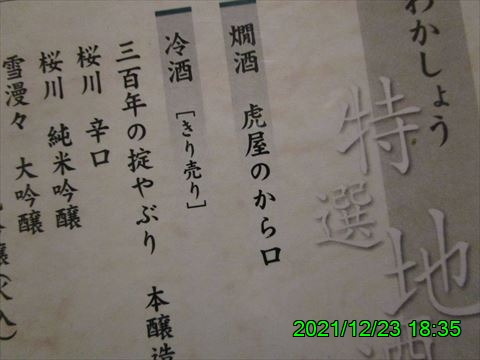 わかしょう
特選 地
燗酒 虎屋のから口
冷酒 [きり売り]
三百年の掟やぶり 本醸造
桜川 辛口
桜川 純米吟醸
雪漫々 大吟醸
2021/12/23 18:35